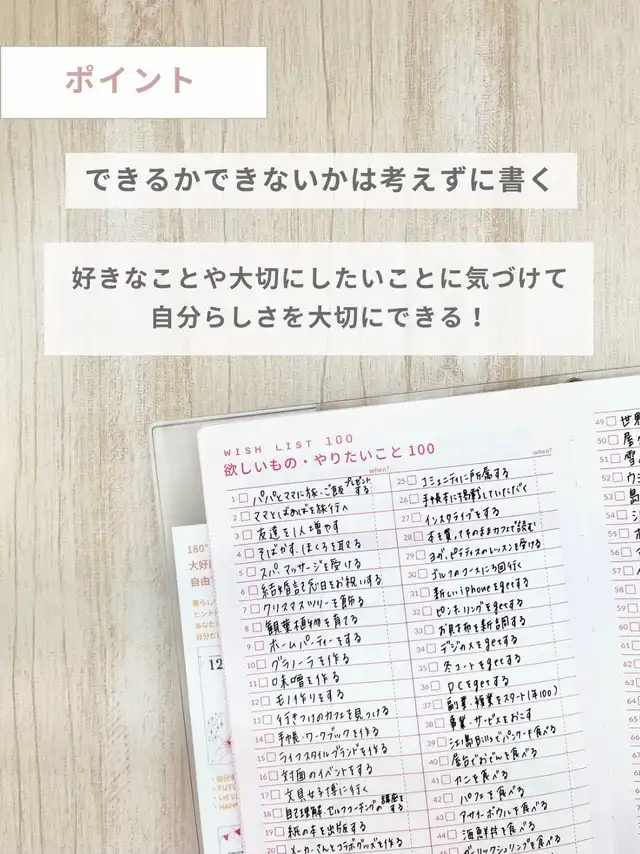 ポイント
できるかできないかは考えずに書く
好きなことや大切にしたいことに気づけて
自分らしさを大切にできる!
WISH LIST 100
欲しいもの・やりたいこと100
when?
1 パパとママに旅・ご飯プレゼントする
2 ママとばあばを旅行へ
3 友達を1人増やす
4 そばかす、ほくろを取る
5 スパ、マッサージを受ける
6 結婚記念日をお祝いする
7 クリスマスツリーを飾る
8 観葉植物を育てる
9 ホームパーティーをする
10 グラノーラを作る
11 味噌を作る
12 モノ作りをする
13 行きつけのカフェを見つける
14 手帳・ワークブックを作る
15 ライフスタイルブランドを作る
16 対面のイベントをする
17 文具女子博に行く
18 自己理解・セルフコーチングの講座をする
19 紙の本を出版する
20 メーカーさんとコラボグッズを作る
when?
25 コミュニティに所属する
26 手帳本に掲載していただく
27 インスタライブをする
28 本を買ってそのままカフェで読む
29 ヨガ、ピラティスのレッスンを受ける
30 ゴルフのコースに3回行く
31 新しいiPhoneをgetする
32 ピンキーリングをgetする
33 お財布を新調する
34 デジカメをgetする
35 冬コートをgetする
36 PCをgetする
37 副業・複業をスタート(年100)
38 事業・サービスをおこす
39 江ノ島Billsでパンケーキ食べる
40 屋台でおでんを食べる
41 カニを食べる
42 パフェを食べる
43 アサイーボウルを食べる
44 海鮮丼を食べる
ガーリックシュリンプを食べる
49 世界
50 屋
51 雪
52 ウ
53 島
54
55
56
57
60
61
62
63
64
65
66
67
68
180°
大好
自由
12